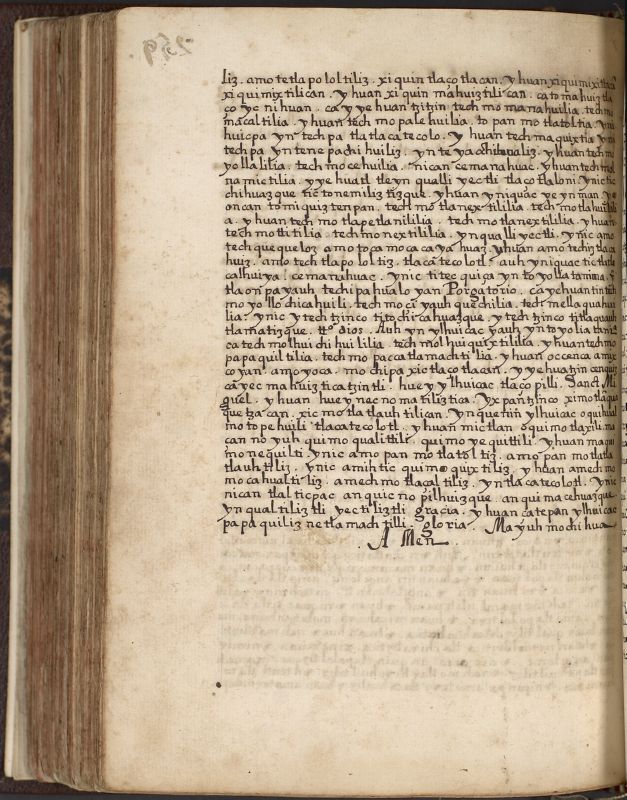 liz. amo tetlapololtiliz. xi quin tlaçotlacan. yhuan xi qui mixtlaca
xi qui mixtilican. yhuan xi quin mahuiztilican. ca to mahuiztla
ço yc nihuan. ca yyehuantzitzin techmo manahuilia. techmo
mãcaltilia. yhuan techmo palehuilia. to pan motlatoltia. yni
huicpa yn techpa tlatlacatecolo. yhuan techmaquixtia yni
techpa yn tenepachihuiliz. yn teyacohtlanaliz. yhuan techmo
yollalilia. techmo cehuilia. nican cemanahuac. yhuan techmol
namictilia. yyehuatl tleyn qualli yectli tlaçotlaloni ynic tic
chihuazque tic to nemiliztizque. yhuan yniquac ye yn man ye
oncan to miquiztenpan. techmo tlanextililia. techmo tlahuilili
a. yhuan techmo tlapetlanililia. techmo tlanextililia. yhuan
techmo ttitilia. techmo nextililia. yn qualli yectli. ynic amo
techquequeloz. amo toca mocacayahuaz. yhuan amo techiztlaca
huiz. amo techtlapololtiz. tlacatecolotl. auh yniquac tic tlatla
calhuiya. cemanahuac. ynic titecquiça yn toyollatanima. y
tlaonpayauh techipahualoyan Porgatorio. ca ychuantintzin
moyollochicahuili. techmocniyauhquechilia. techmellaquahui
lia. ynic ytechtzinco titochicahuazque. ytechtzinco titlaquauh
tlamatizque. tto dios. Auh yn ylhuicac yauh yn toyolia tanin
ca techmolhuichihuililia. techmolhuiquixtililia. yhuan techmo
papaquiltilia. techmo paccatlamachtilia. yhuan occenca amix
coyan. amoyoca. mochipa xictlaçotlacan. yyehuatzin cenquiz
cayecmahuizticatzintli. huey ylhuicac tlaçopilli. Sanct Mi
guel. yhuan huey necnomatiliztica. yxpantzinco ximotlaqua
quetzacan. xic motlatlauhtilican. yn quenin ylhuicac oquihual
motopehuili tlacatecolotl. yhuan mictlan oquimotlaxili. ma
can no yuh quimo qualittili. quimo yequittili. yhuan maqui
monequilti ynic amopan motlatoltiz. amopan motlatla
tlauhtiliz. ynic amihtic quimoquixtiliz. yhuan amechmo
mocahualtiliz. amechmo tlacaltiliz. yn tlacatecolotl. ynic
nican tlalticpac anquicnopilhuizque. anquimacehuazque
yn qualtiliztli yectiliztli gracia. yhuan catepan ylhuicac
papaquiliznetlamachtilli. gloria. Ma yuh mochihua
Amen.